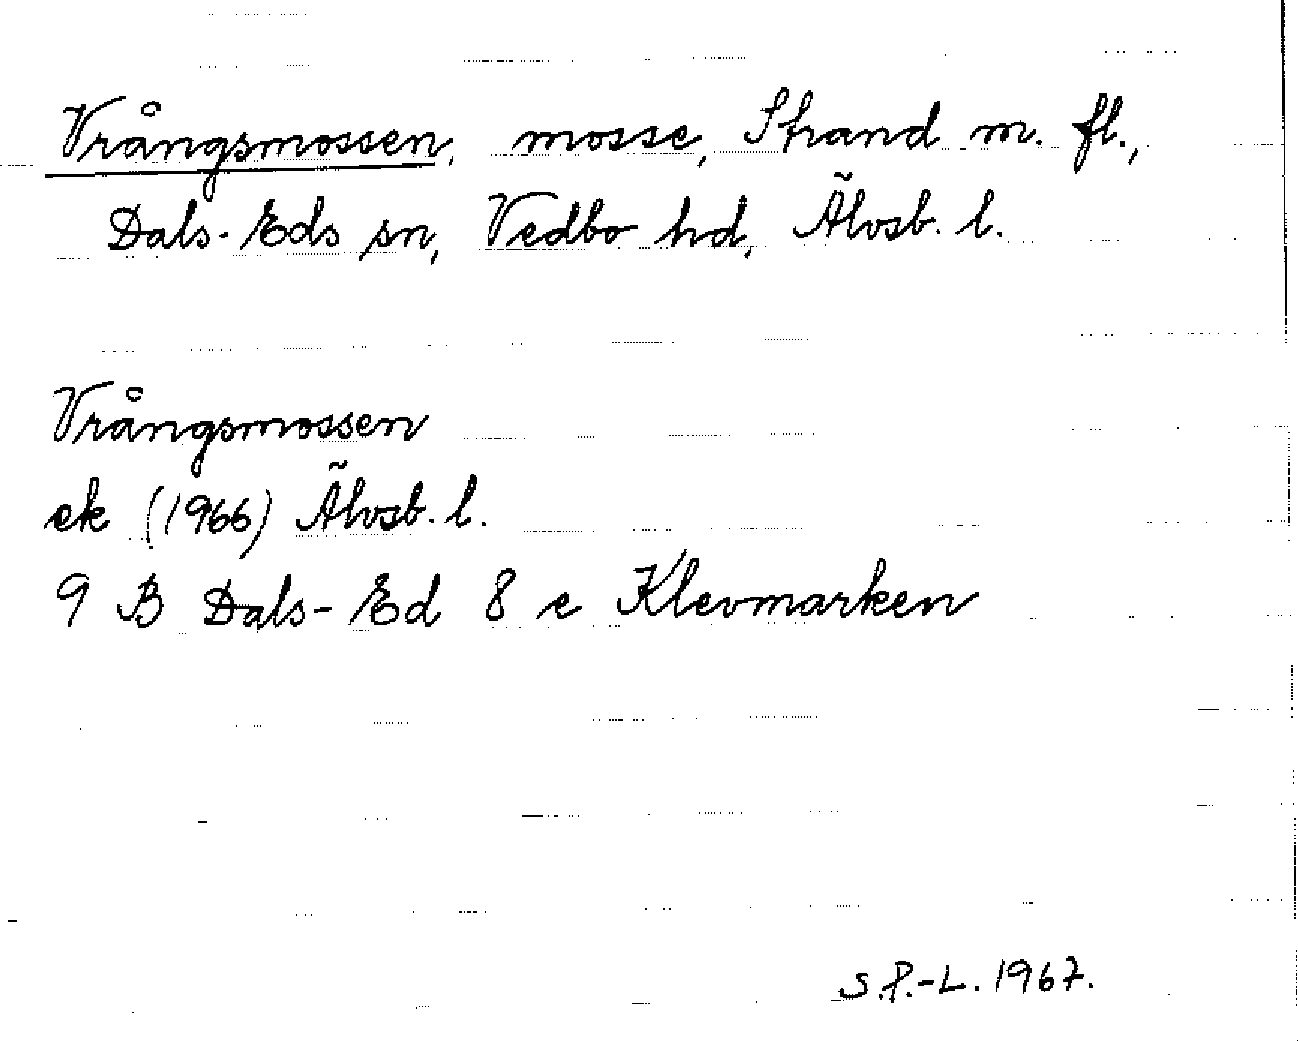 Vrångsmossen, mosse, Strand m. fl.,
Dals-Eds sn, Vedbo hd, Älvsb. l.
Vrångsmossen
ek (1966) Älvsb. l.
9 B Dals-Ed 8 e Klevmarken
S.P.-L. 1967.